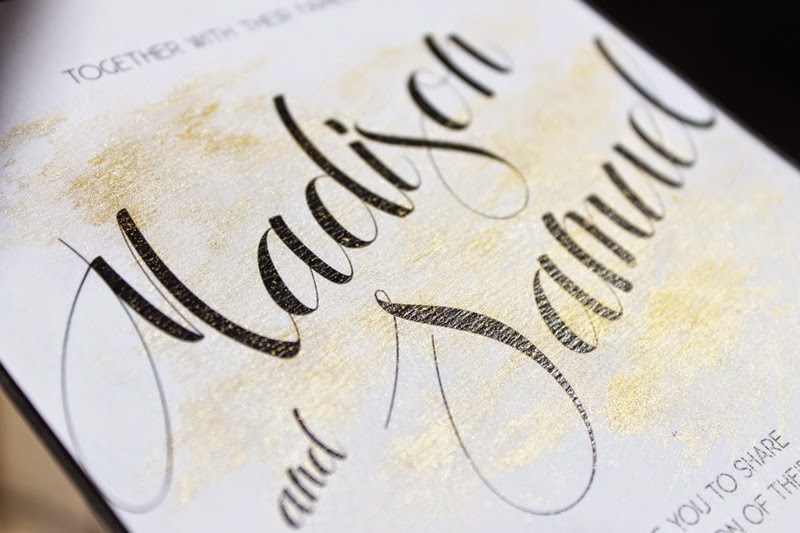 TOGETHER WITH THEIR
Madison
and
Samuel
YOU TO SHARE
OF THEIR